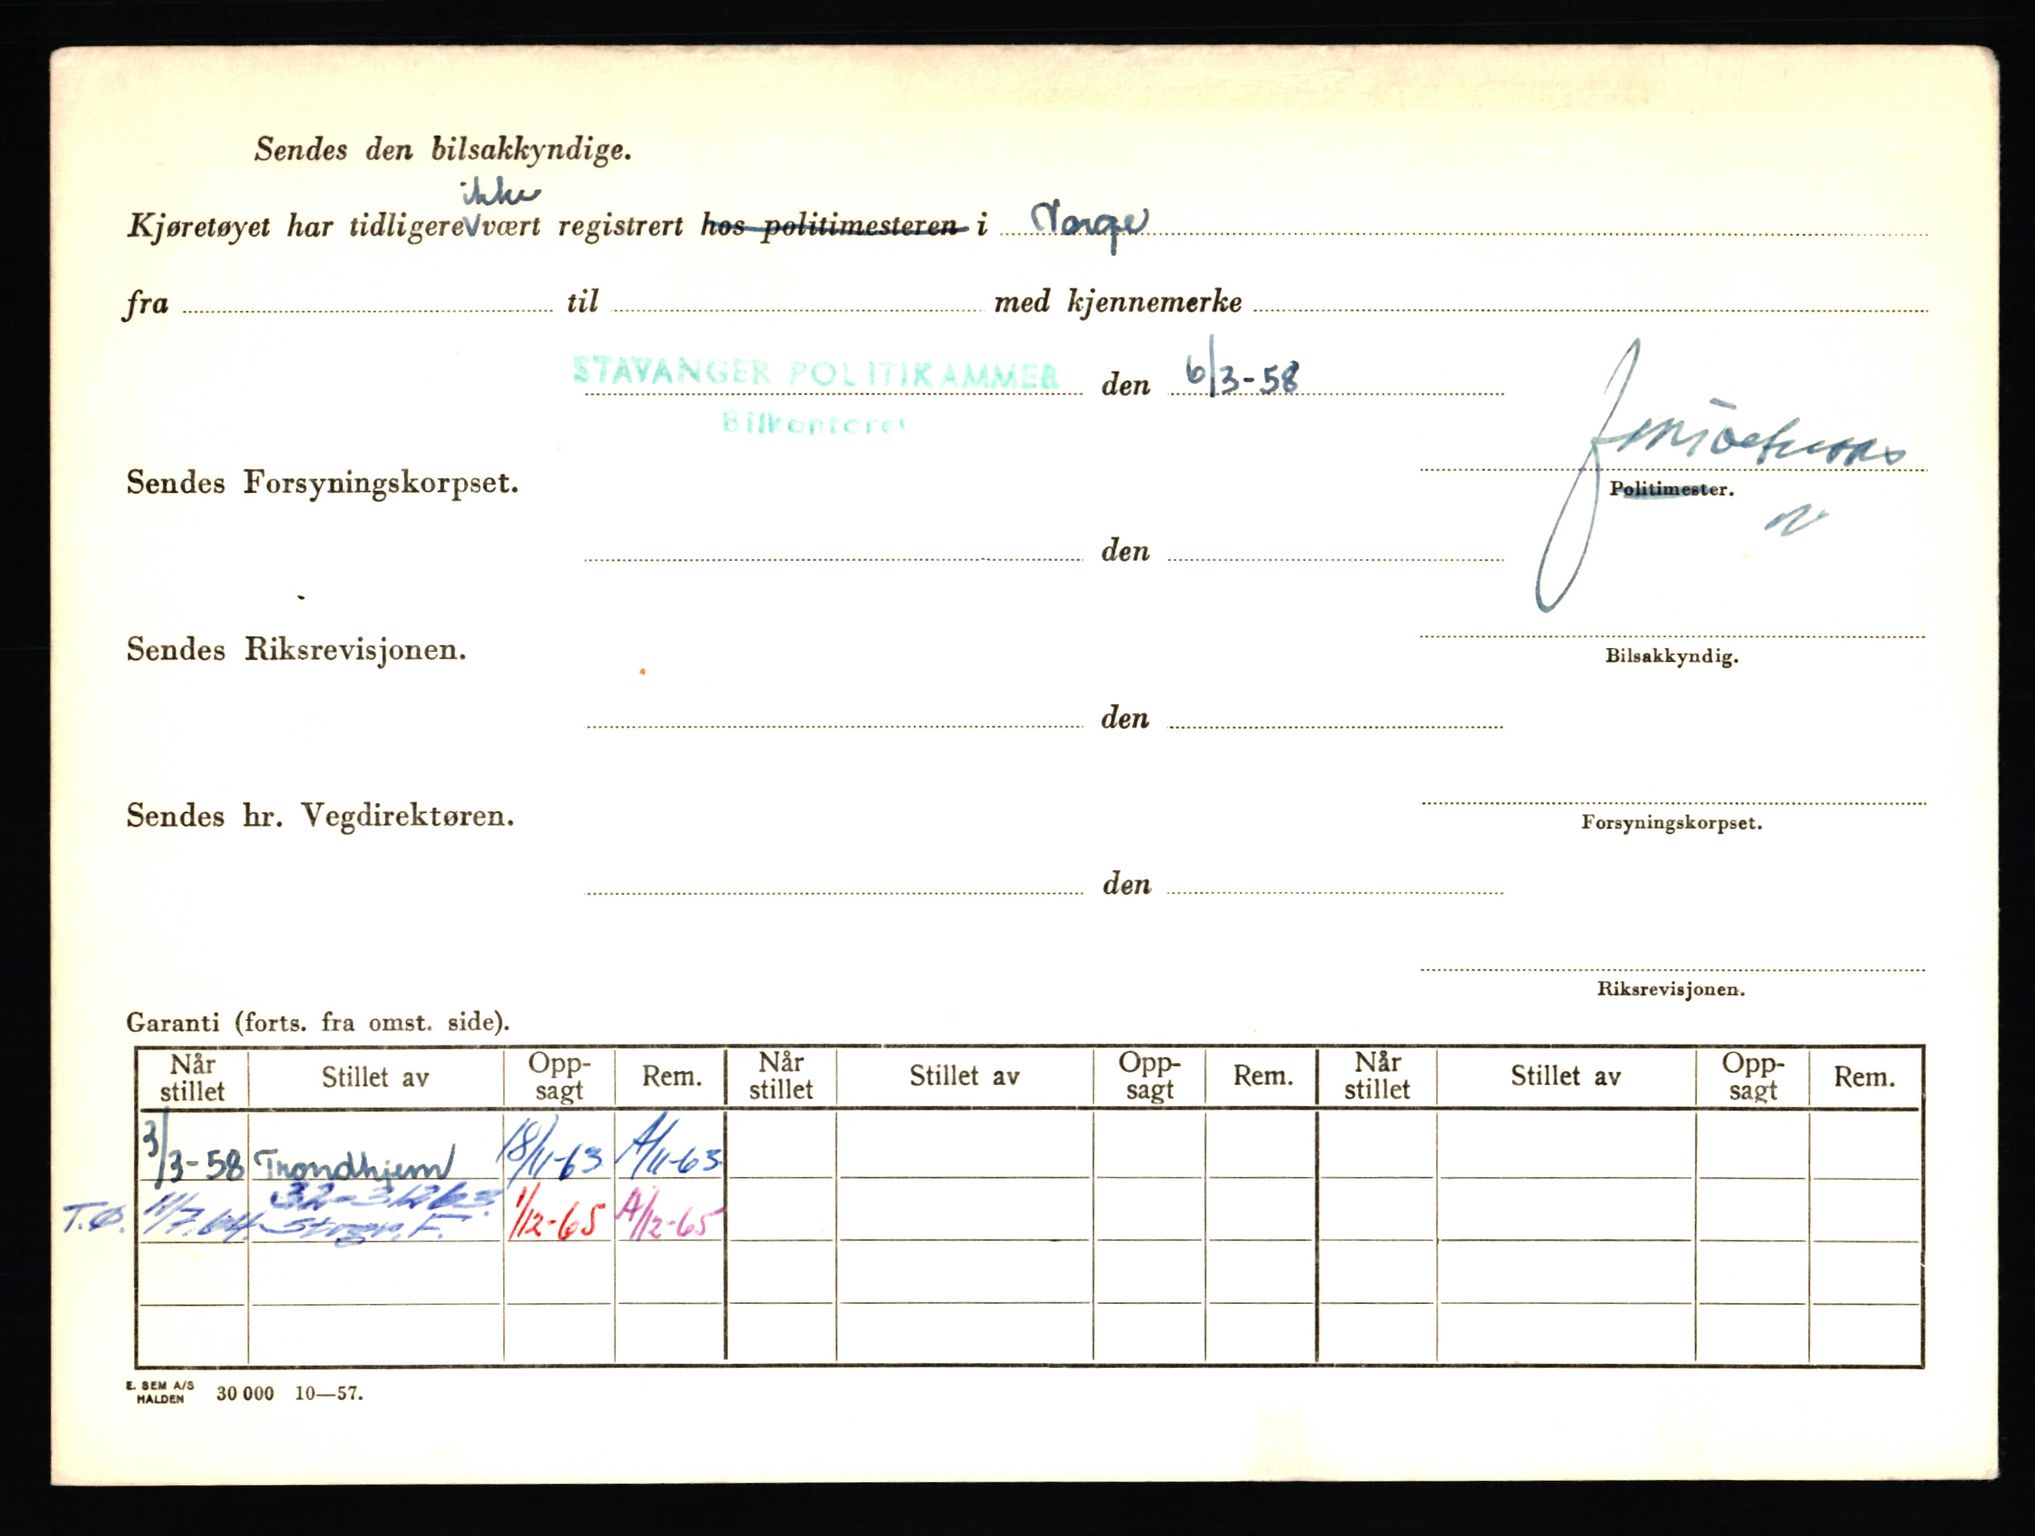 Sendes den bilsakkyndige.
ikke
Kjøretøyet har tidligere vært registrert hos politimesteren i Norge
fra til med kjennemerke
STAVANGER POLITIKAMMER den 6/3-58
Bilkontoret
Sendes Forsyningskorpset.
Politimester.
den
Sendes Riksrevisjonen.
Bilsakkyndig.
den
Sendes hr. Vegdirektøren.
Forsyningskorpset.
den
Riksrevisjonen.
Garanti (forts. fra omst. side).
Når stillet Stillet av Opp-sagt Rem. Når stillet Stillet av Opp-sagt Rem. Når stillet Stillet av Opp-sagt Rem.
3/3-58 Trondhjem 18/11-63 A/11-63
T.Ø. 11/7.64. 1/12-65 A/12-65
E. SEM A/S
HALDEN 30 000 10—57.